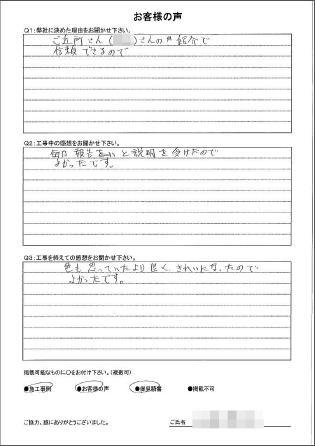 お客様の声
Q1:弊社に決めた理由をお聞かせ下さい。
ご近所さん( )さんの声紹介で
信頼できるので
Q2:工事中の感想をお聞かせ下さい。
毎日報告と説明を受けたので
よかったです。
Q3:工事を終えての感想をお聞かせ下さい。
色も思っていたより良く、きれいになったので
よかったです。
掲載可能なものに○をお付け下さい。(複数可)
●施工事例 ●お客様の声 ●御見積書 ●掲載不可
ご協力、誠にありがとうございました。
ご氏名